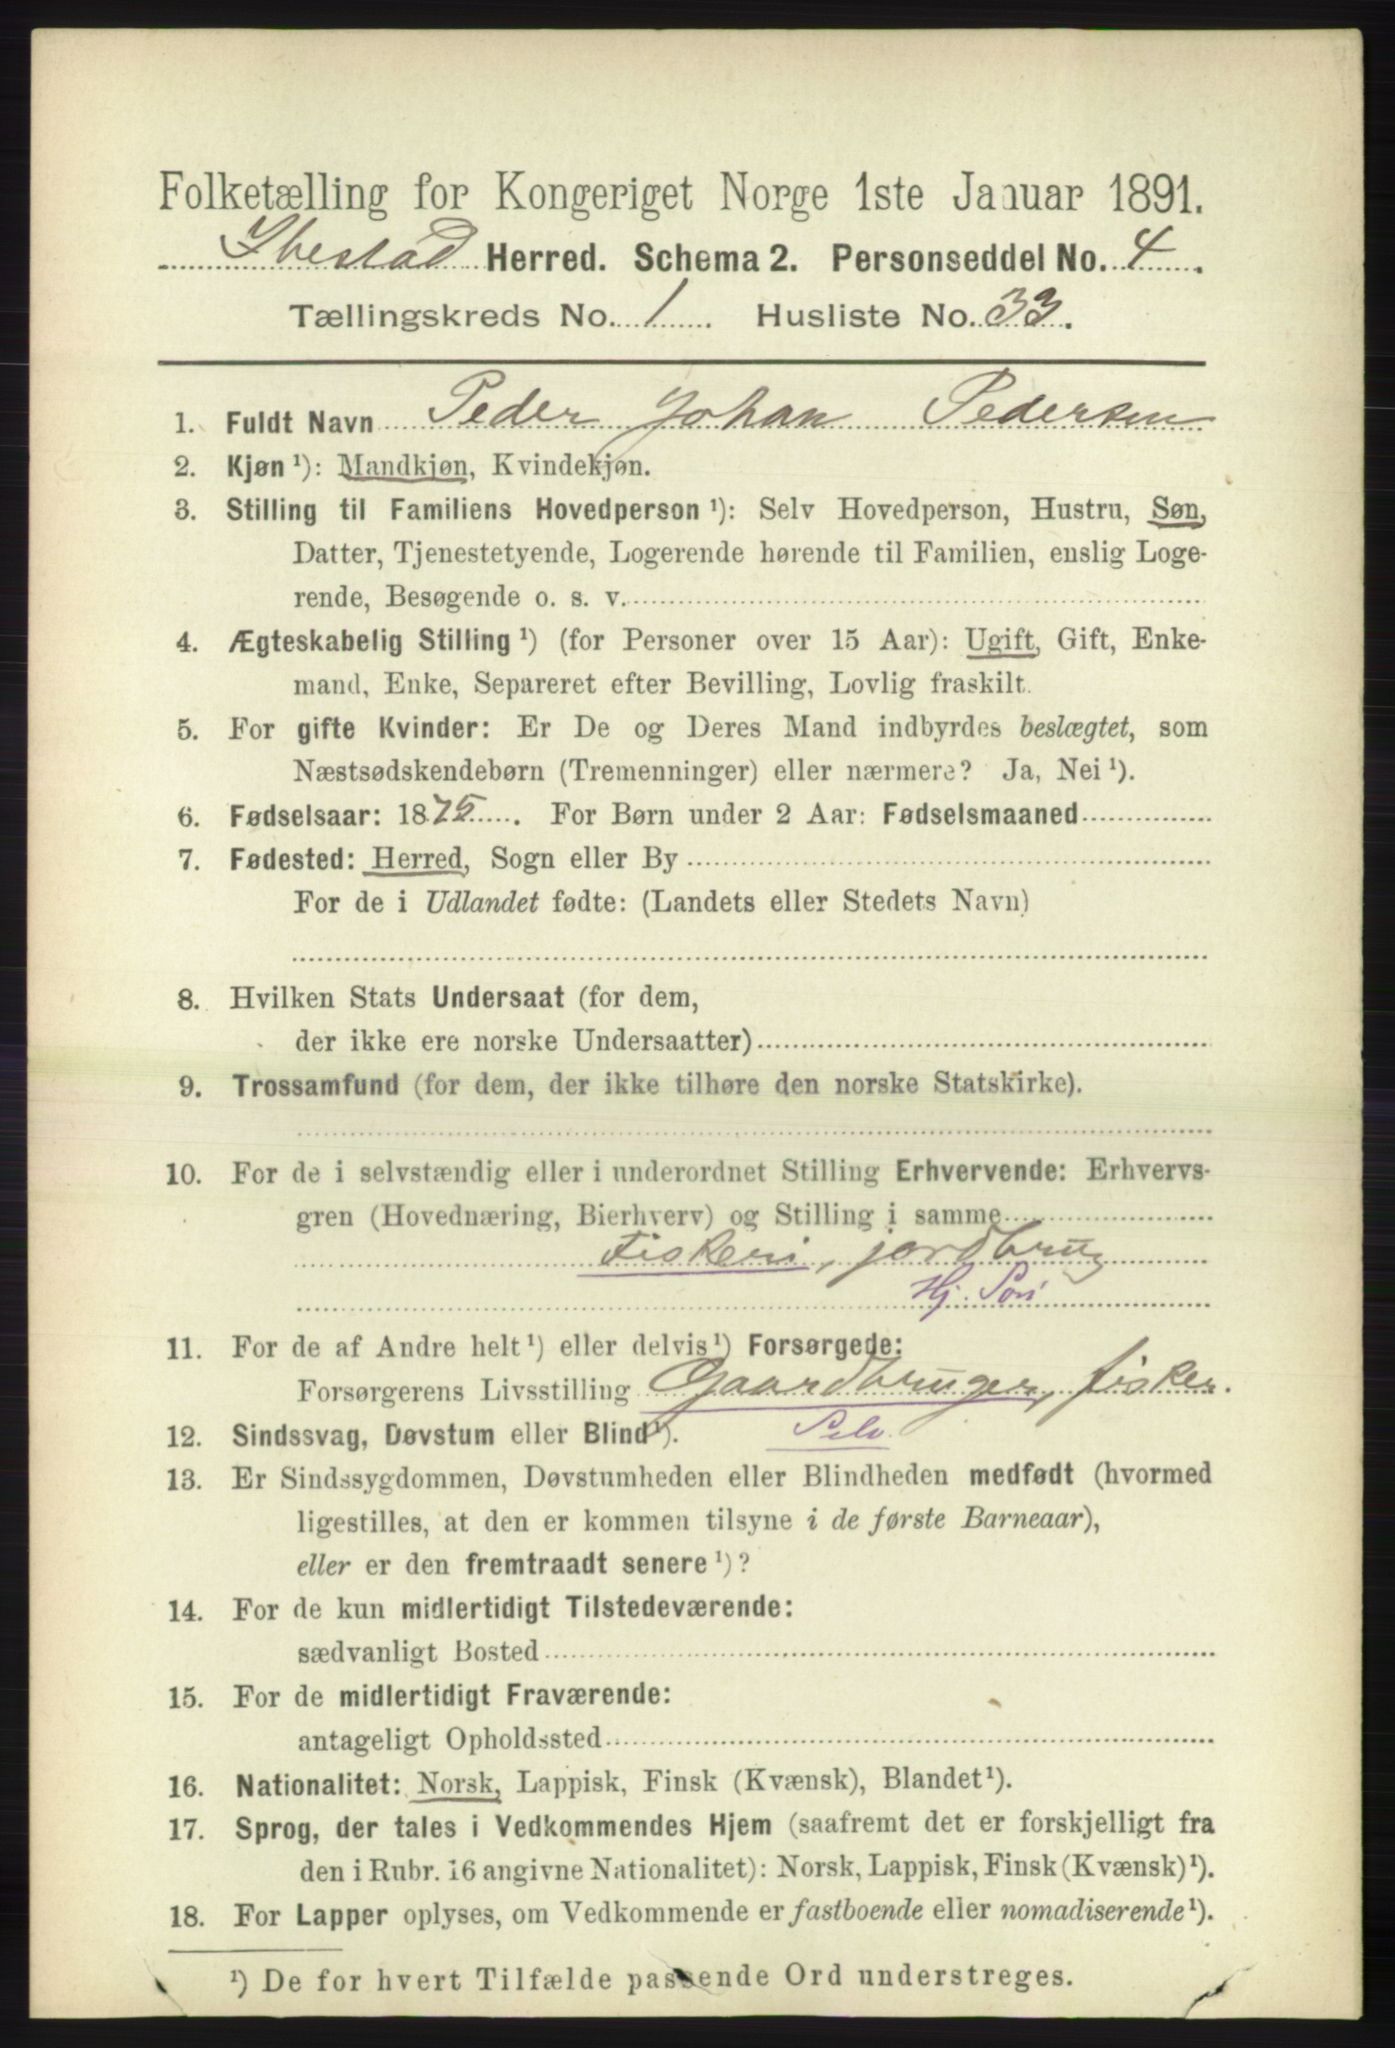 Folketælling for Kongeriget Norge 1ste Januar 1891.
Ibestad Herred. Schema 2. Personseddel No. 4.
Tællingskreds No. 1. Husliste No. 33.
1. Fuldt Navn Peder Johan Pedersen
2. Kjøn ¹): Mandkjøn, Kvindekjøn.
3. Stilling til Familiens Hovedperson ¹): Selv Hovedperson, Hustru, Søn,
Datter, Tjenestetyende, Logerende hørende til Familien, enslig Loge-
rende, Besøgende o. s. v.
4. Ægteskabelig Stilling ¹) (for Personer over 15 Aar): Ugift, Gift, Enke-
mand, Enke, Separeret efter Bevilling, Lovlig fraskilt.
5. For gifte Kvinder: Er De og Deres Mand indbyrdes beslægtet, som
Næstsødskendebørn (Tremenninger) eller nærmere? Ja, Nei ¹).
6. Fødselsaar: 1875. For Børn under 2 Aar: Fødselsmaaned
7. Fødested: Herred, Sogn eller By
For de i Udlandet fødte: (Landets eller Stedets Navn)
8. Hvilken Stats Undersaat (for dem,
der ikke ere norske Undersaatter)
9. Trossamfund (for dem, der ikke tilhøre den norske Statskirke).
10. For de i selvstændig eller i underordnet Stilling Erhvervende: Erhvervs-
gren (Hovednæring, Bierhverv) og Stilling i samme
Fiskeri, jordbrug
Hj. Søn
11. For de af Andre helt ¹) eller delvis ¹) Forsørgede:
Forsørgerens Livsstilling Gaardbruger, fisker.
12. Sindssvag, Døvstum eller Blind ¹). Selv.
13. Er Sindssygdommen, Døvstumheden eller Blindheden medfødt (hvormed
ligestilles, at den er kommen tilsyne i de første Barneaar),
eller er den fremtraadt senere ¹)?
14. For de kun midlertidigt Tilstedeværende:
sædvanligt Bosted
15. For de midlertidigt Fraværende:
antageligt Opholdssted
16. Nationalitet: Norsk, Lappisk, Finsk (Kvænsk), Blandet ¹).
17. Sprog, der tales i Vedkommendes Hjem (saafremt det er forskjelligt fra
den i Rubr. 16 angivne Nationalitet): Norsk, Lappisk, Finsk (Kvænsk) ¹).
18. For Lapper oplyses, om Vedkommende er fastboende eller nomadiserende ¹).
¹) De for hvert Tilfælde passende Ord understreges.